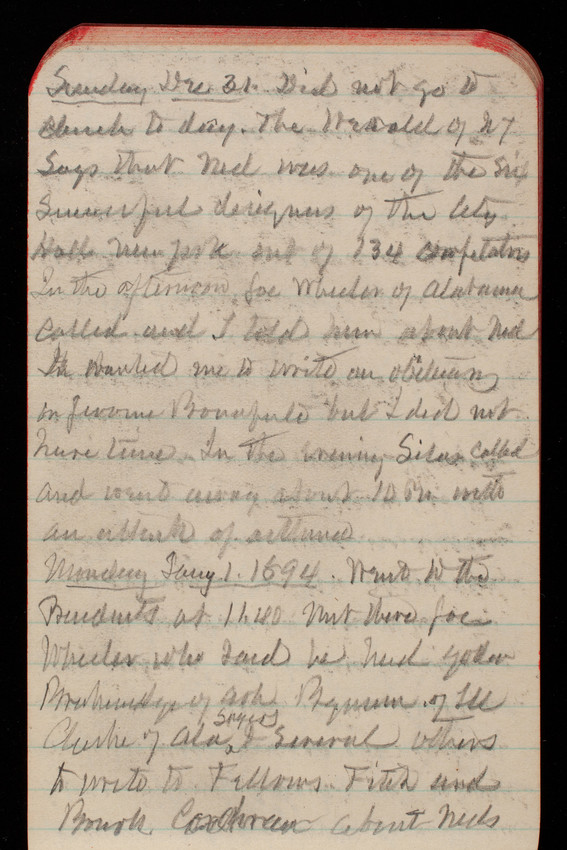 Sunday Dec 31. Did not go to
church to day. The Herald of NY
Says that Ned was one of the six
Successful designers of the City
Hall New York out of 134 competitors
In the afternoon Joe Wheeler of Alabama
called and I told him about Ned
He wanted me to write an obituary
on Jerome Bonaparte but I did not
have time. In the evening Silas called
and went away about 10 PM with
an attack of asthma
Monday Jany 1. 1894. Went to the
Presidents at 11.40 Met there Joe
Wheeler who said he had gotten
Breckinridge of Ark of Ill
Clarke of Ala, Sayers & Several others
to write to Fellows. Fitch and
Bourk Cockran about Neds